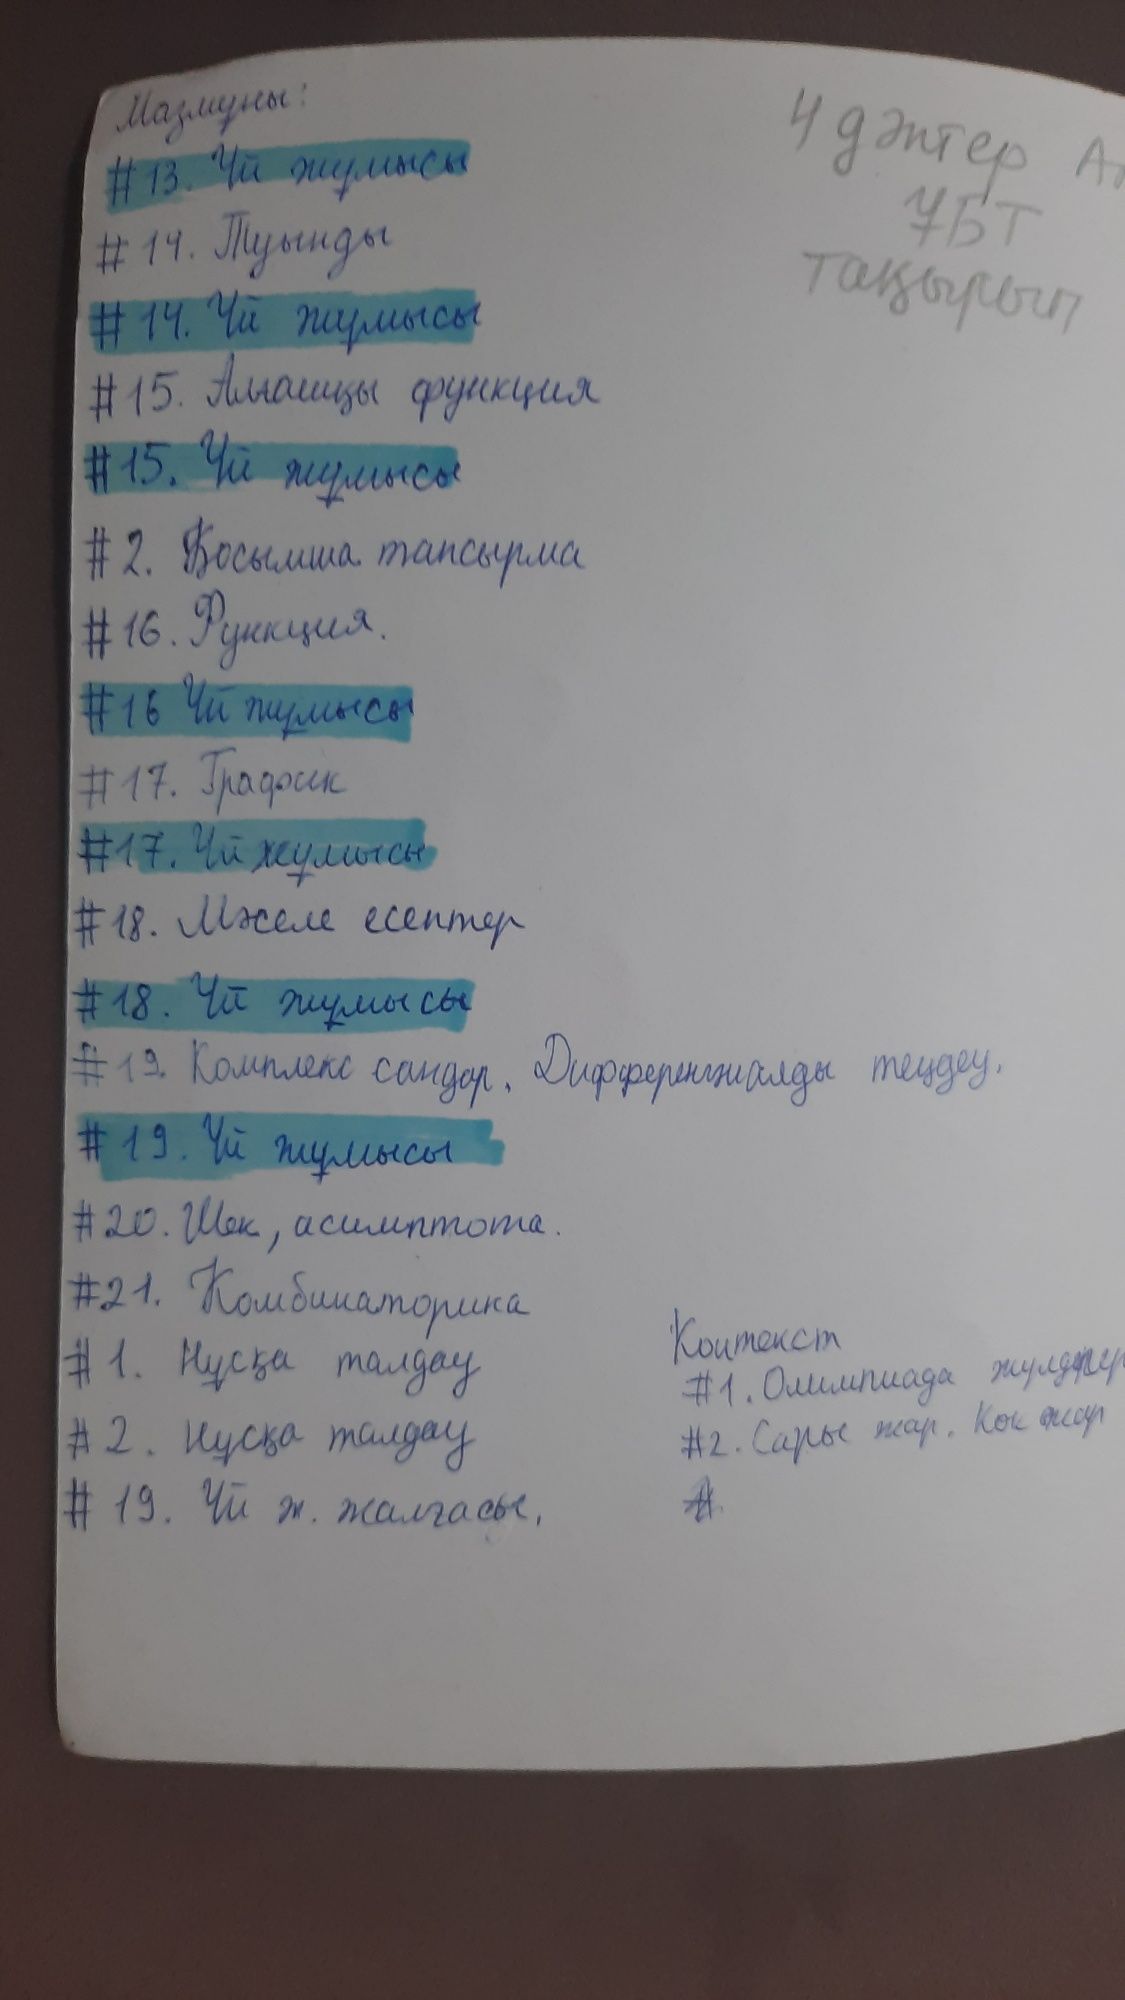 Мазмұны:
#13. Үй жұмысы
#14. Туынды
#14. Үй жұмысы
#15. Алғашқы функция
#15. Үй жұмысы
#2. Қосымша тапсырма
#16. Функция.
#16 Үй жұмысы
#17. График
#17. Үй жұмысы
#18. Мәселе есептер
#18. Үй жұмысы
#19. Комплекс сандар. Дифференциалды теңдеу.
#19. Үй жұмысы
#20. Шек, асимптота.
#21. Комбинаторика
#1. Нұсқа талдау
#2. Нұсқа талдау
#19. Үй ж. жалғасы.
4 дәптер
ҰБТ
тақырып
Контекст
#1. Олимпиада
#2. Сары жар. Көк жар
#